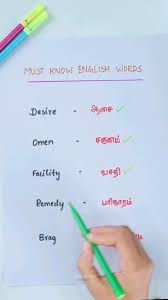 MUST KNOW ENGLISH WORDS
Desire - ஆசை
Omen - சகுனம்
Facility - வசதி
Remedy - பரிகாரம்
Brag